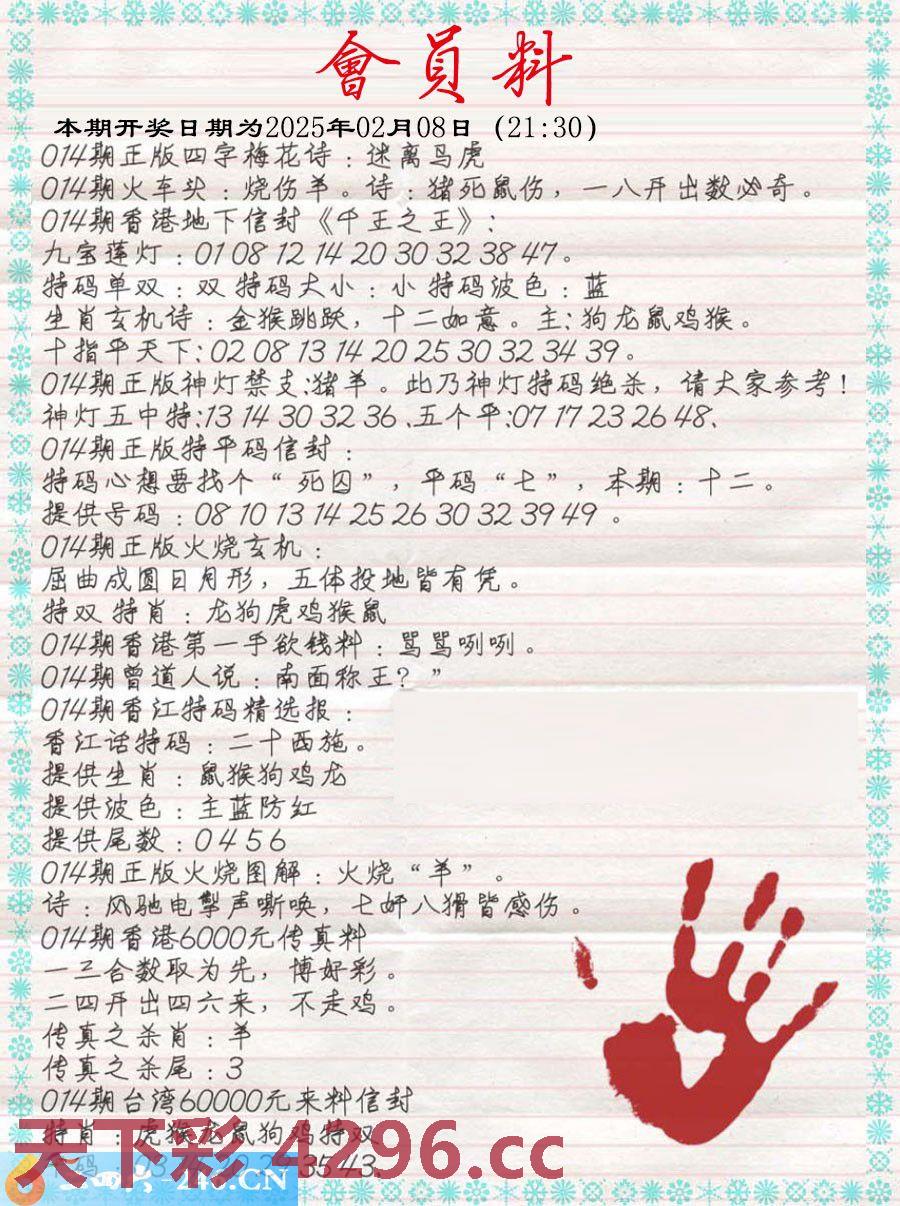 會員料
本期开奖日期为2025年02月08日（21:30）
014期正版四字梅花诗：迷离马虎
014期火车头：烧伤羊。诗：猪死鼠伤，一八开出数必奇。
014期香港地下信封《千王之王》:
九宝莲灯：01 08 12 14 20 30 32 38 47。
特码单双：双 特码大小：小 特码波色：蓝
生肖玄机诗：金猴跳跃，十二如意。主:狗龙鼠鸡猴。
十指平天下:02 08 13 14 20 25 30 32 34 39。
014期正版神灯禁支:猪羊。此乃神灯特码绝杀，请大家参考！
神灯五中特:13 14 30 32 36、五个平:07 17 23 26 48、
014期正版特平码信封：
特码心想要找个“死囚”，平码“七”，本期：十二。
提供号码：08 10 13 14 25 26 30 32 39 49 。
014期正版火烧玄机：
屈曲成圆日月形，五体投地皆有凭。
特双 特肖：龙狗虎鸡猴鼠
014期香港第一手欲钱料：骂骂咧咧。
014期曾道人说：南面称王？”
014期香江特码精选报：
香江话特码：二十西施。
提供生肖：鼠猴狗鸡龙
提供波色：主蓝防红
提供尾数：0 4 5 6
014期正版火烧图解：火烧“羊”。
诗：风驰电掣声嘶唤，七奸八猾皆感伤。
014期香港6000元传真料
一三合数取为先，博好彩。
二四开出四六来，不走鸡。
传真之杀肖：羊
传真之杀尾：3
014期台湾60000元来料信封
特肖：虎猴龙鼠狗鸡特双
天下彩 4296.cc
35 43、
246.CN